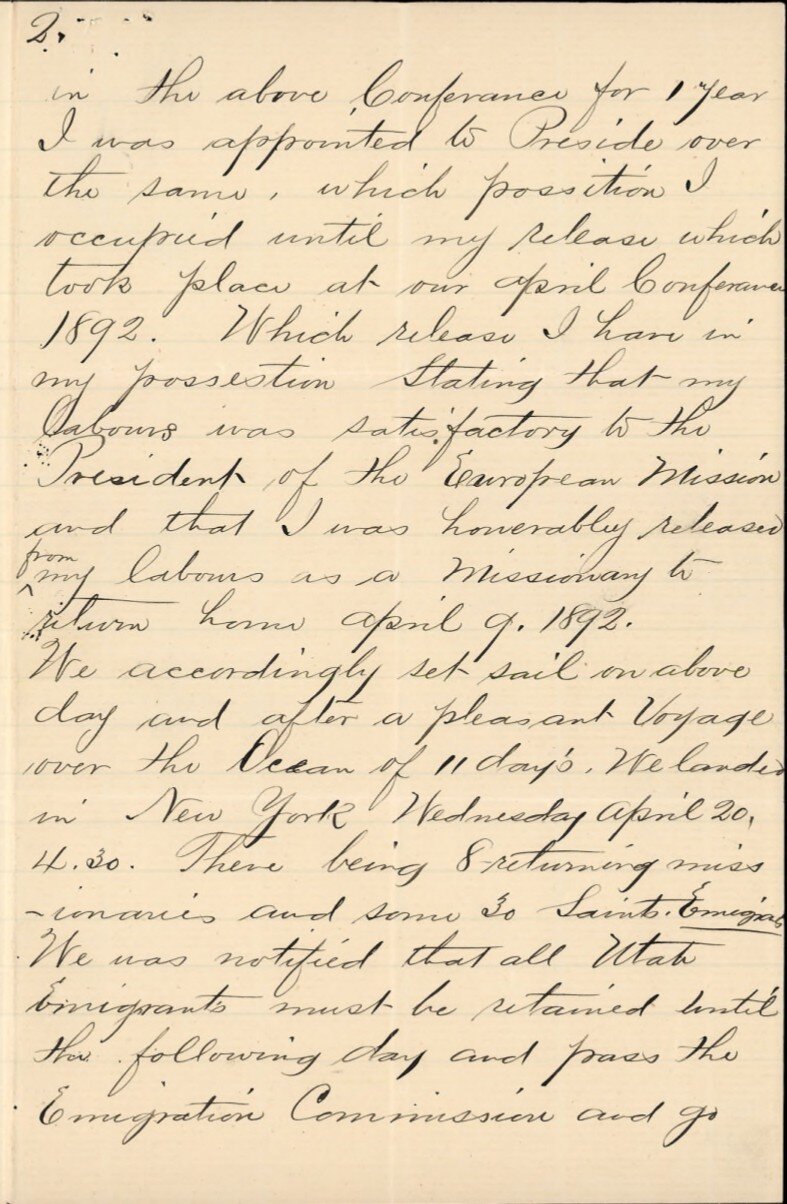 2.
in the above Conferance for 1 year
I was appointed to Preside over
the same, which possition I
occupried until my release which
took place at our april Conferance
1892. Which release I have in
my possestion Stating that my
labours was satisfactory to the
President of the European Mission
and that I was honerably released
from
my labours as a Missionary to
return home april 9. 1892.
We accordingly set sail on above
day and after a pleasant Voyage
over the Ocean of 11 day's. We landed
in New York Wednesday April 20,
4.30. There being 8 returning miss
-ionaries and some 30 Saints. Emigrats
We was notified that all Utah
Emigrants must be retained until
the following day and pass the
Emigration Commission and go